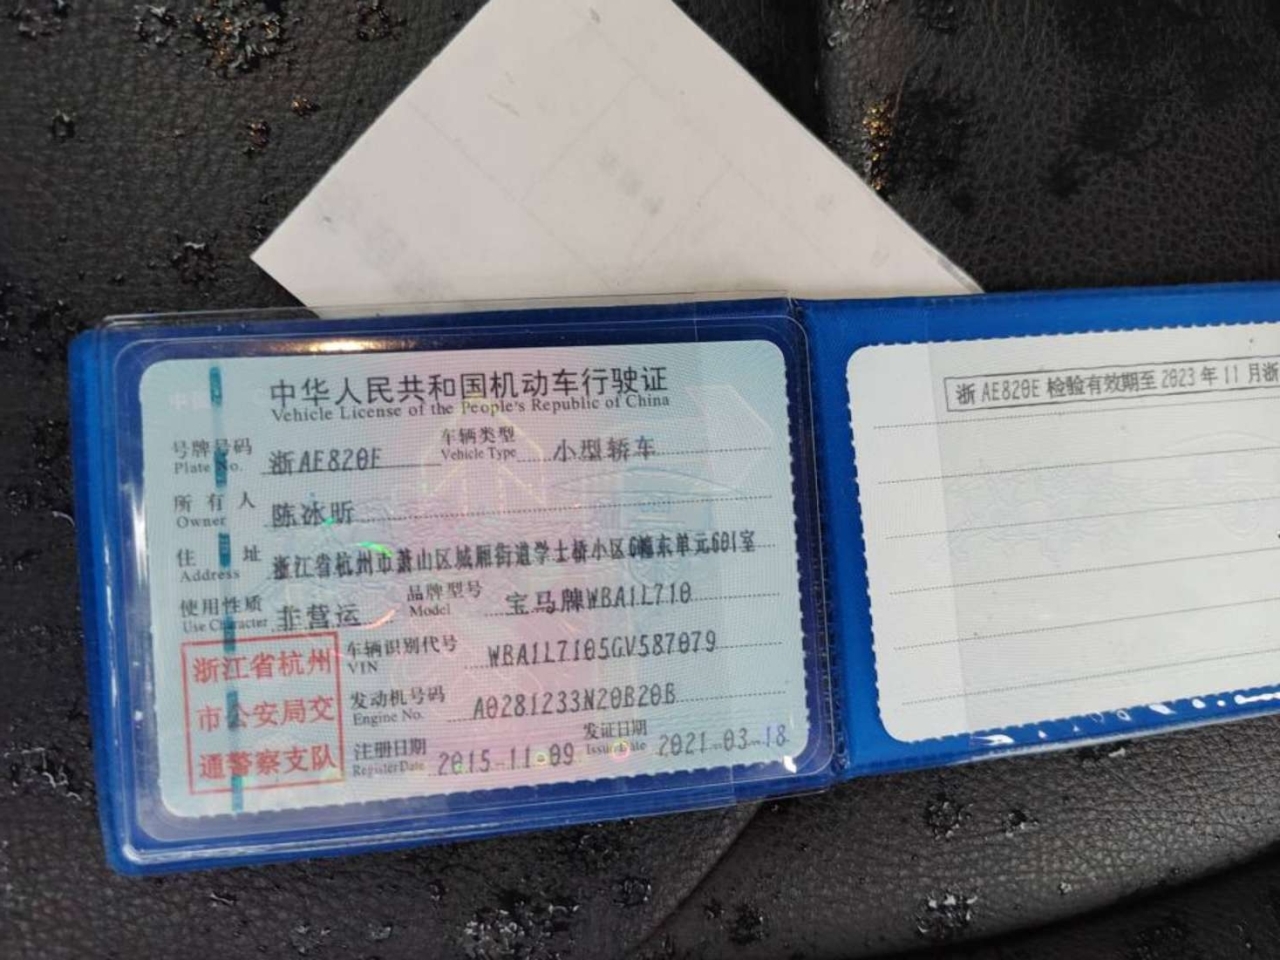 中华人民共和国机动车行驶证
Vehicle License of the People's Republic of China
号牌号码 浙AE820E 车辆类型 小型轿车
Plate No. Vehicle Type
所有人 陈冰昕
Owner
住址 浙江省杭州市萧山区城厢街道学士桥小区6幢东单元601室
Address
使用性质 非营运 品牌型号 宝马牌WBA1L710
Use Character Model
车辆识别代号 WBA1L7105GV587079
VIN
发动机号码 A0281233N20B20B
Engine No.
注册日期 2015-11-09 发证日期 2021-03-18
Register Date Issue Date
浙江省杭州
市公安局交
通警察支队
浙AE820E 检验有效期至2023年11月浙